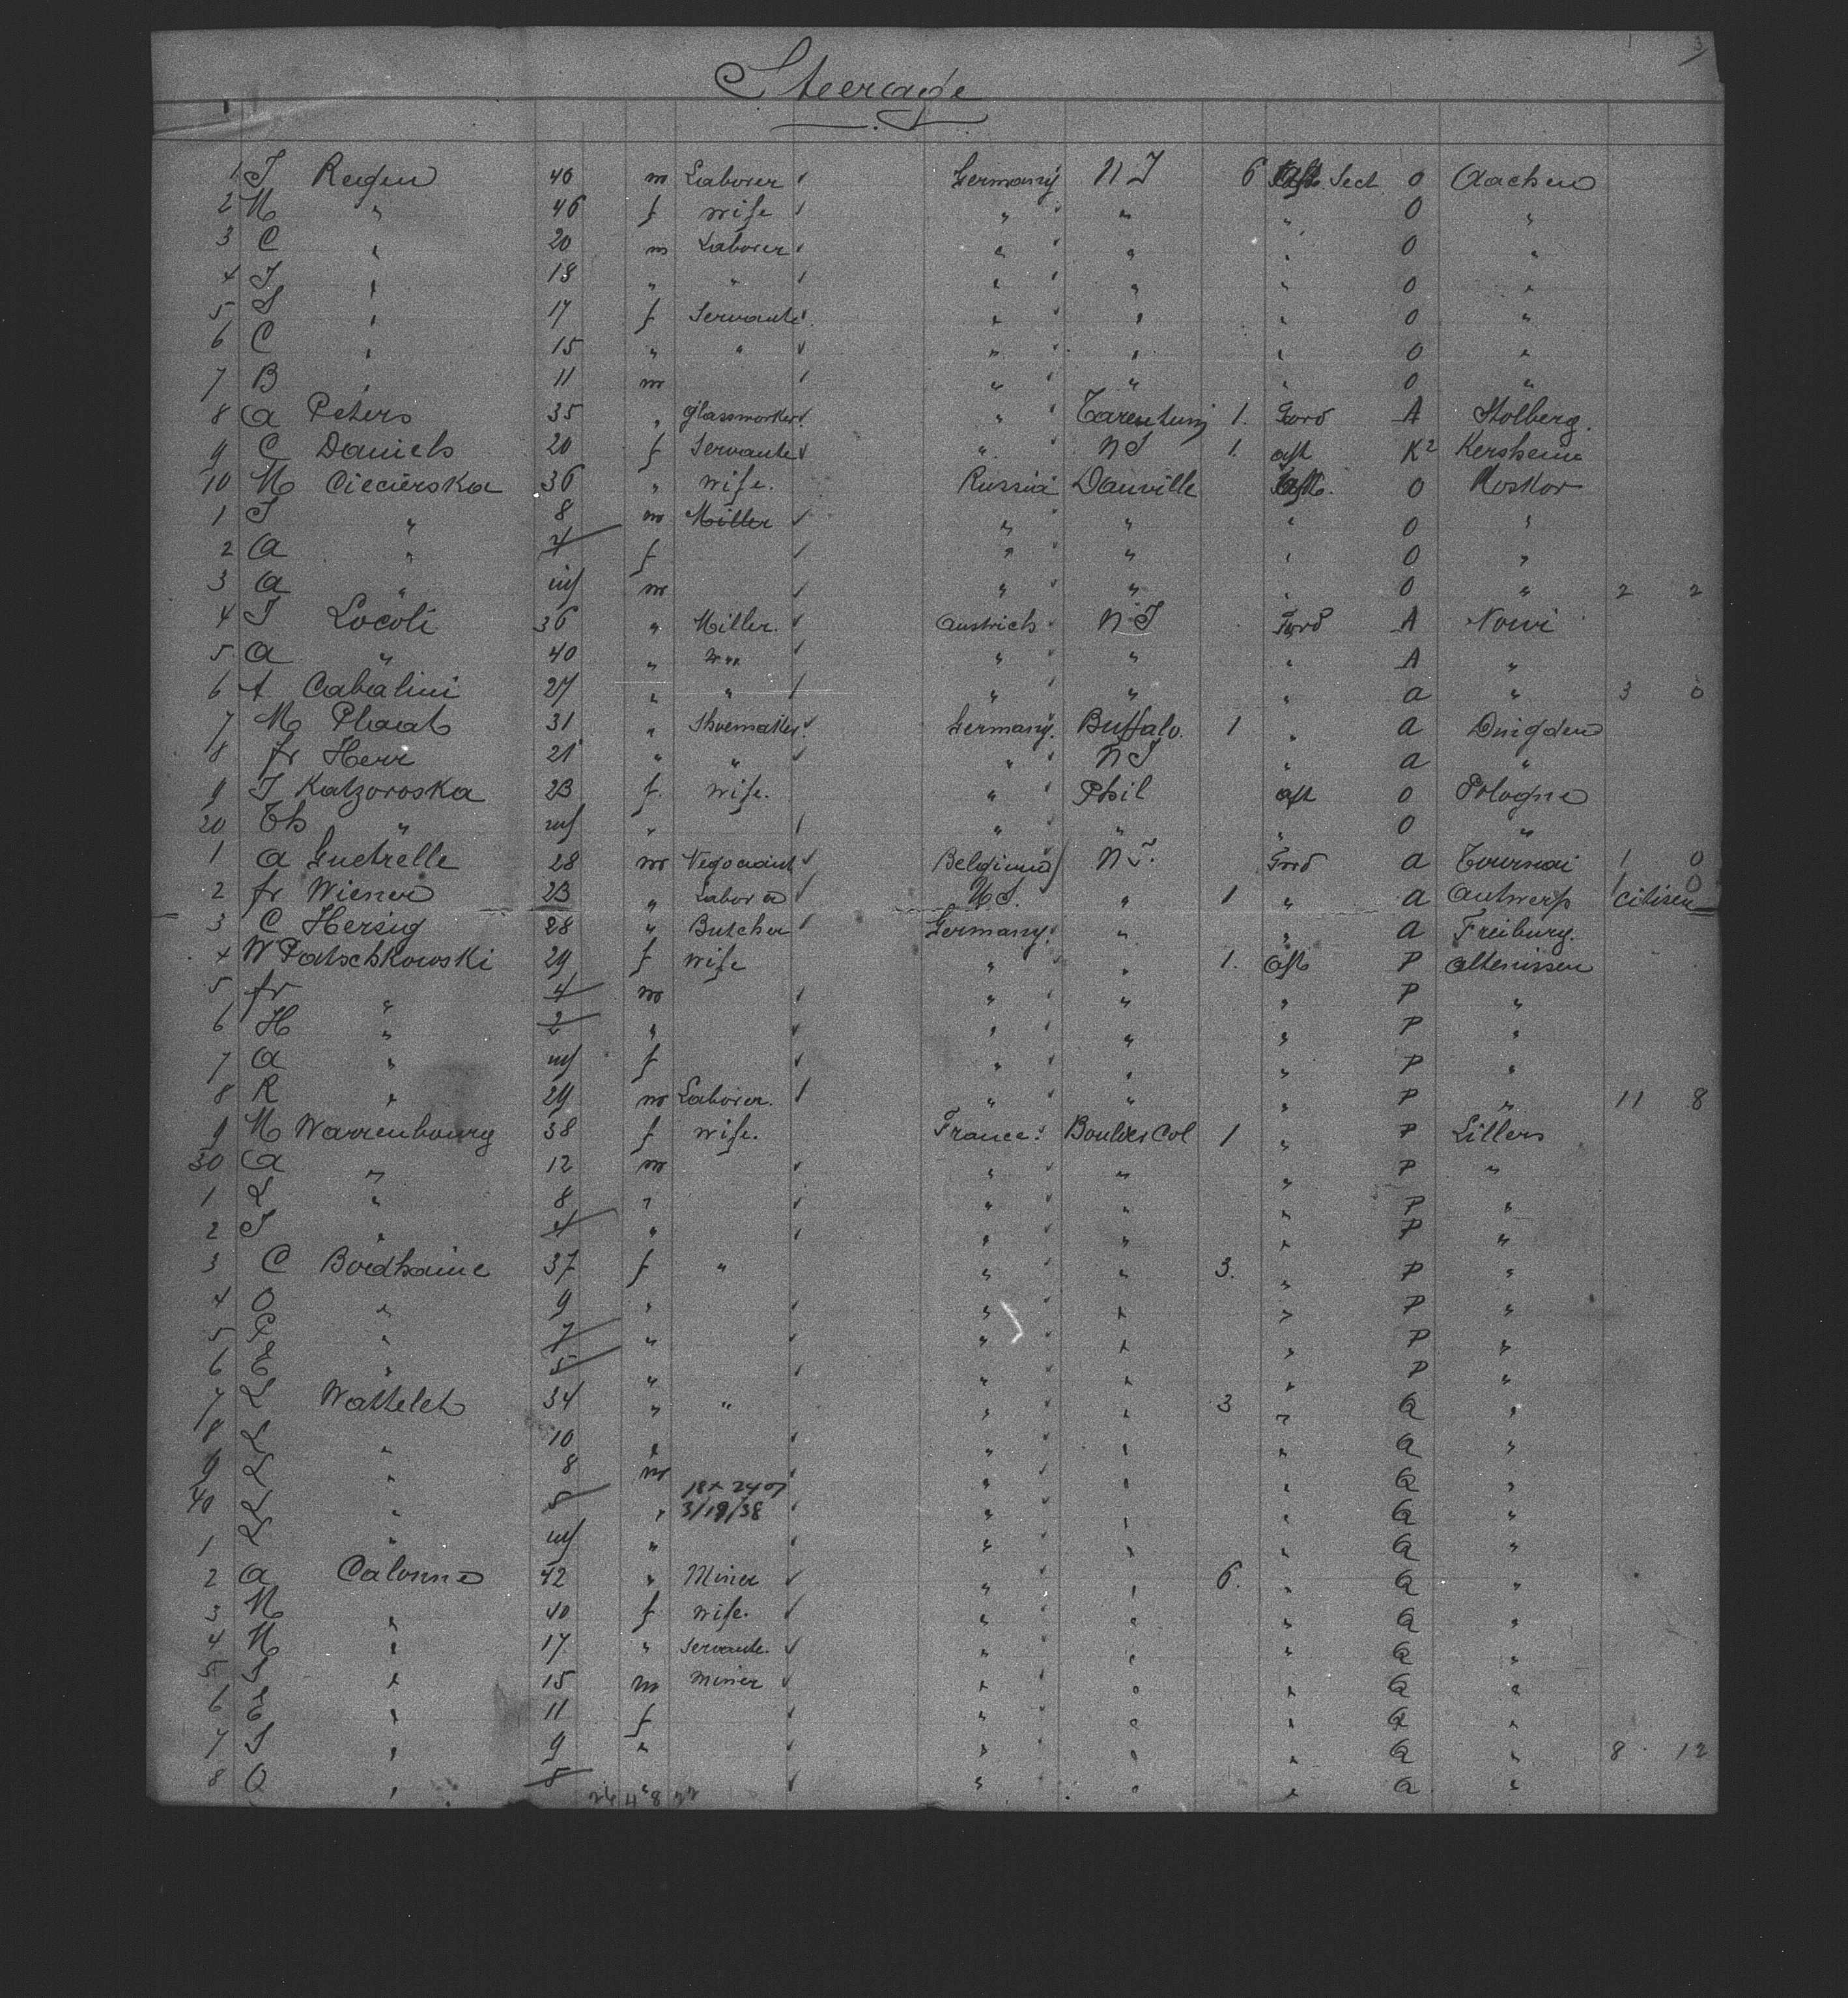 3
Steerage
1 J Regen 46 m Laborer Germany N J 6 Aft Sect O Aachen
2 M " 46 f wife " " " O "
3 C " 20 m Laborer " " " O "
4 J " 18 " " " " " O "
5 S " 17 f Servante " " " O "
6 C " 15 " " " " " O "
7 B " 11 m " " " O "
8 A Peters 35 " glassworker " Tarentum 1. Ford A Stolberg.
9 C Daniels 20 f Servante " N J 1. aft K2
10 M Ciecierska 36 " wife. Russia Danville Aft. O Moskor
1 J " 8 m Miller " " " O "
2 A " 4 f " " " O "
3 A " inf m " " " O " 2 2
4 J Locoli 36 " Miller. Austrich N J Ford A Nowi
5 A " 40 " " " " " A "
6 A Cabalini 27 " " " " " a " 3 0
7 M Plaat 31 " Shoemaker. Germany. Buffalo. 1 " a Dingden
8 fr Herr 21 " " " N J " a "
9 J Katzoroska 23 f. wife. " Phil aft O Pologne
20 Th " inf " " " " O "
1 A Guetrelle 28 m Negociant Belgium N J. Ford a Tournai 1 0
2 fr Wiener 23 " Labor U S. " 1 " a Antwerp citisen 1 0
3 C Hersig 28 " Butcher Germany. " " a Freiburg.
4 W Patschkowski 29 f wife " " 1. Aft P Altenissen
5 fr " 4 m " " " P "
6 H " 2 " " " " P "
7 A " inf f " " " P "
8 R " 29 m Laborer. " " " P " 11 8
9 M Warrenbourg 38 f wife. France. Boulder Col 1 " P Lillers
30 A " 12 m " " " P "
1 L " 8 " " " " P "
2 J " 4 " " " " P "
3 C Bordhaine 37 f " " " 3. " P "
4 O " 9 " " " " P "
5 P " 7 " " " " P "
6 E " 5 " " " " P "
7 L Wattelet 34 " " " " 3 " Q "
8 L " 10 " " " " Q "
9 L " 8 m " " " Q "
40 L " 5 " 3/19/38 " " " Q "
1 L " inf " " " " Q "
2 A Calonne 42 " Miner " " 6. " Q "
3 M " 40 f wife. " " " Q "
4 M " 17 " Servante. " " " Q "
5 J " 15 m Miner " " " Q "
6 E " 11 f " " " Q "
7 S " 9 " " " " Q " 8 12
8 O " 8 " " " " Q "